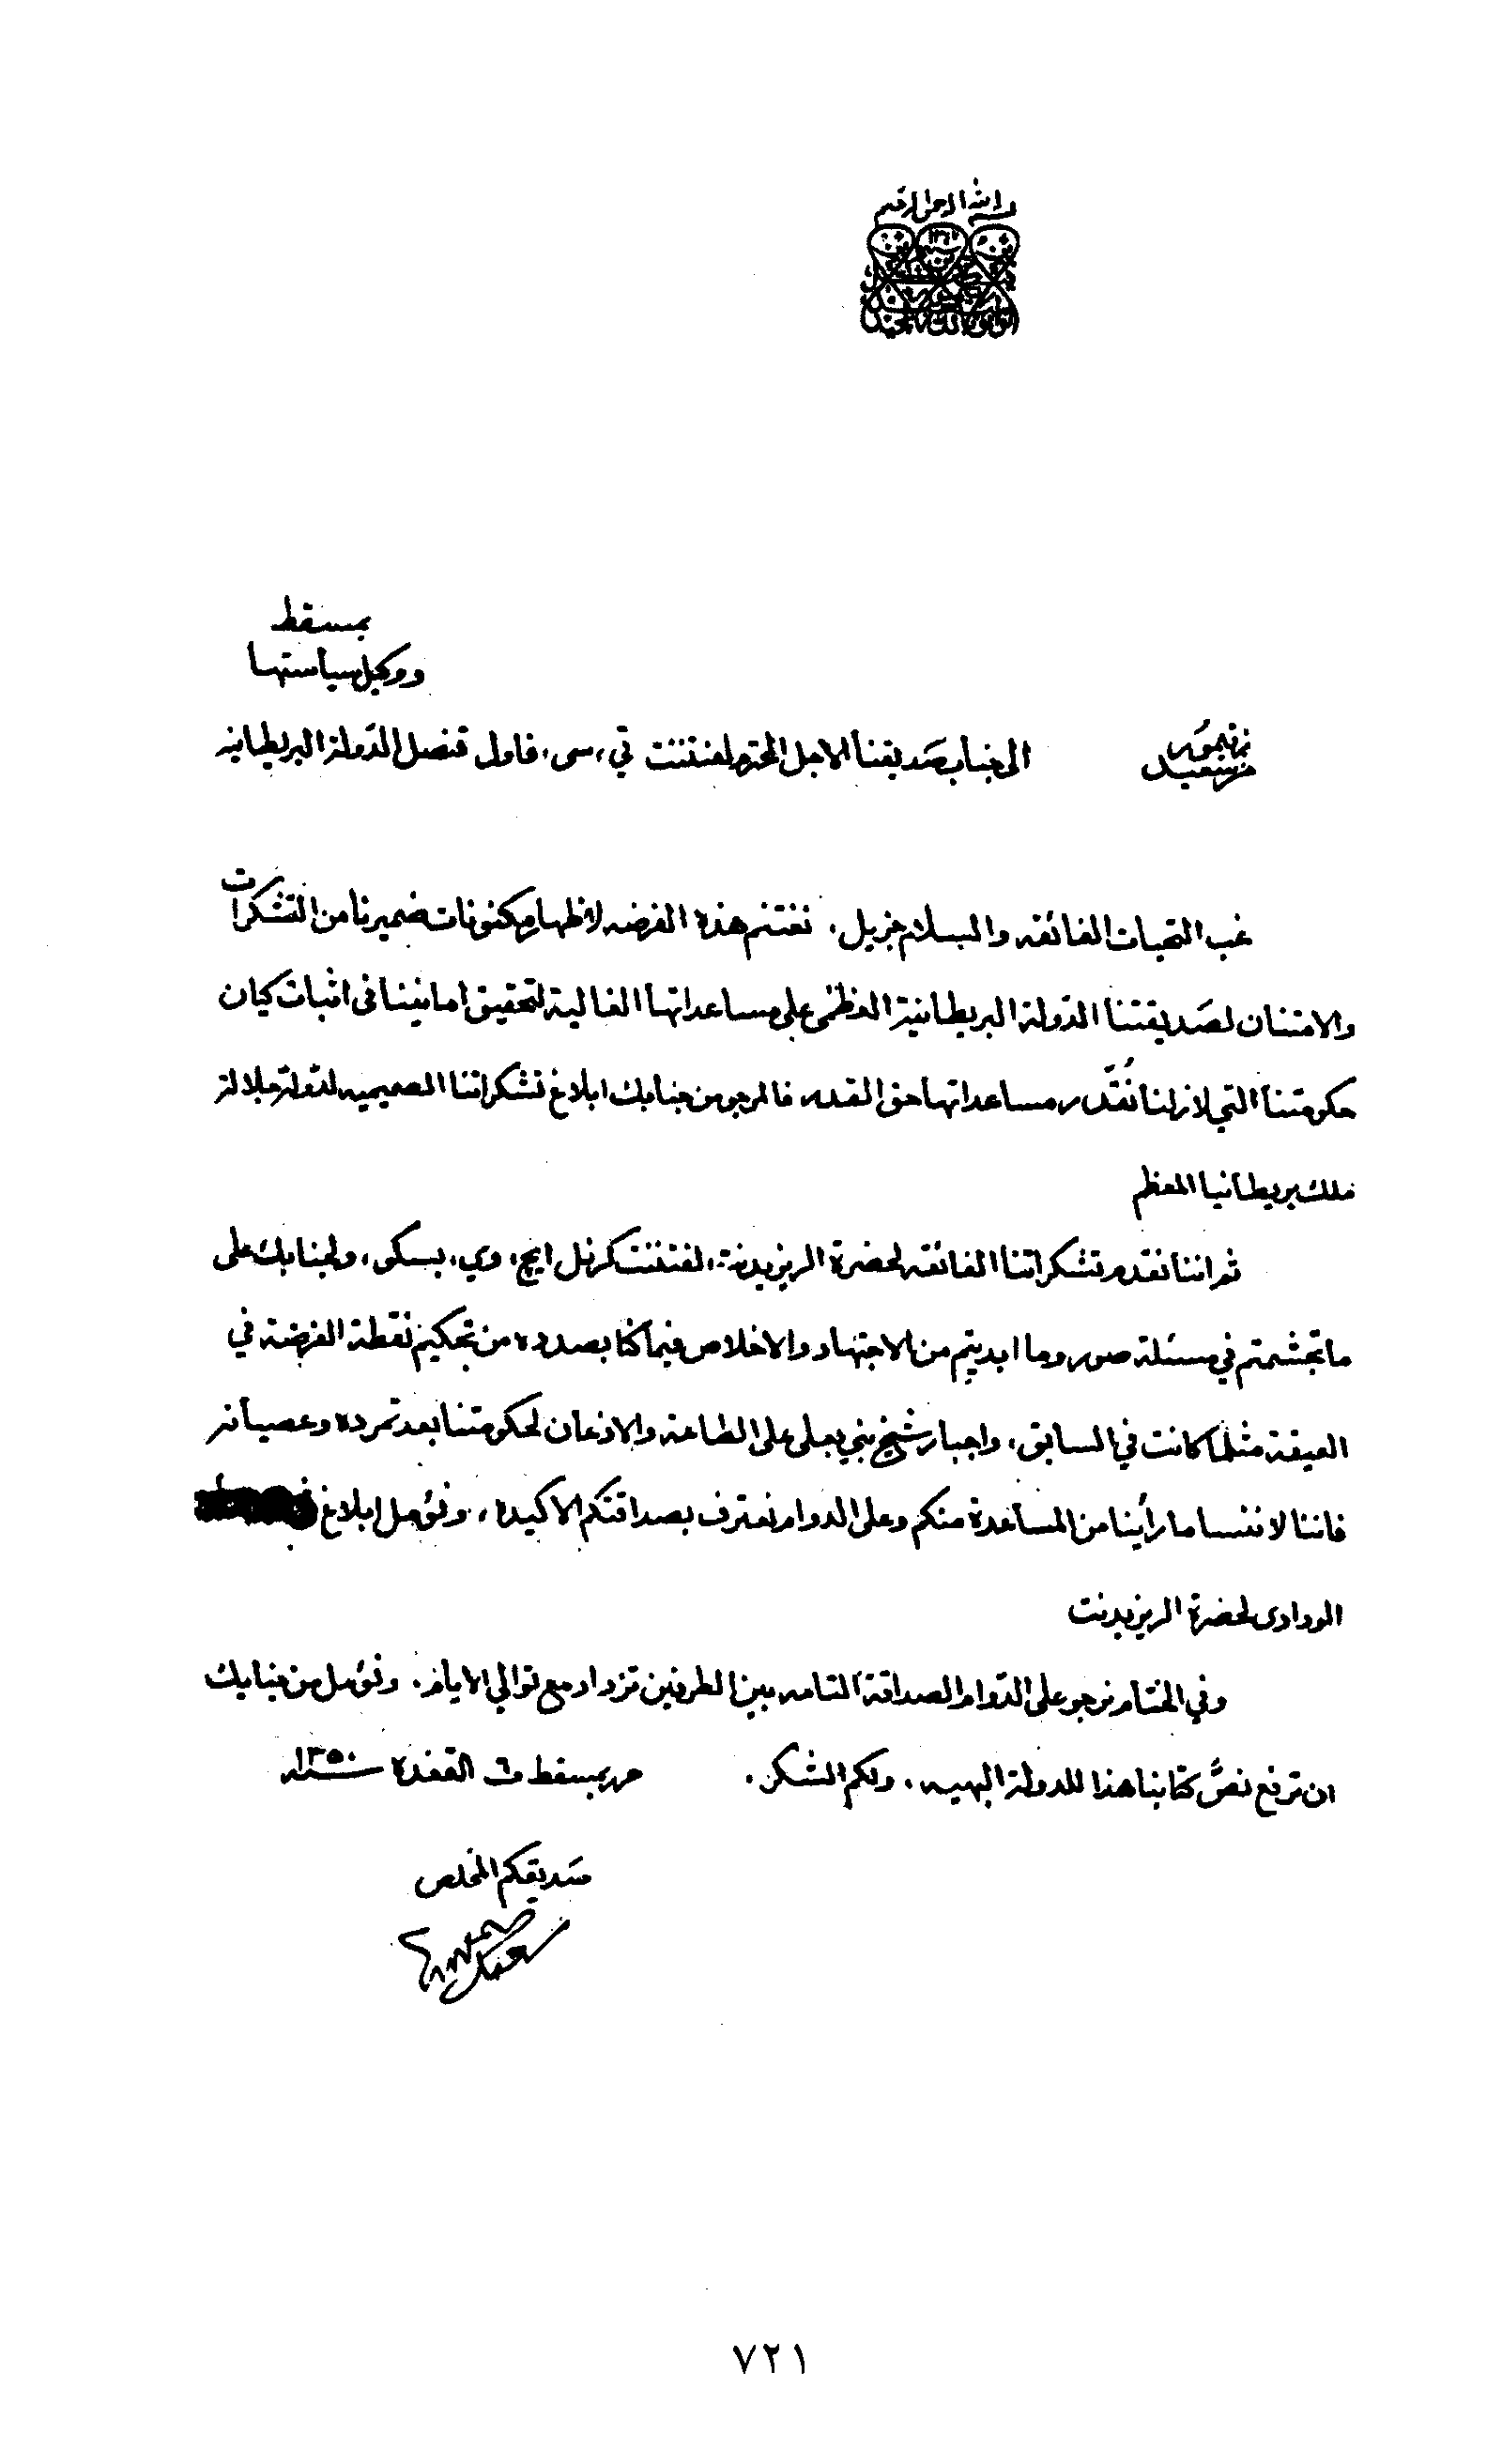 بسم الله الرحمن الرحيم
بمسقط
ووكيل سياستها
من سعيد بن تيمور
الى جناب صديقنا الاجل المحترم لفتننت تي، سي، فاول قنصل الدولة البريطانيه
غب التحيات الفائقه والسلام جزيل، نغتنم هذه الفرصه لاظهار مكنونات ضميرنا من التشكرات
والامتنان لصديقتنا الدولة البريطانية العظمى على مساعداتها الغالية لتحقيق امانينا في اثبات كيان
حكومتنا التي لازلنا نُقدّر مساعداتها حق القدر، فالمرجو من جنابك ابلاغ تشكراتنا الصميميه لدولة جلالة
ملك بريطانيا المعظم
ثم اننا نقدم تشكراتنا الفائقه لحضرة الريزيدنت، لفتننت كرنل ايچ، وي، بسكو، ولجنابك على
ما تجشمتم في مسئلة صور وما ابديتم من الاجتهاد والاخلاص فيما كنا بصدده من تحكيم نقطة الفرضة في
العيقة مثلما كانت في السابق، واجبار شيخ بني بعلي على الطاعة والاذعان لحكومتنا بعد تمرده وعصيانه
فاننا لا ننسا ما رأينا من المساعدة منكم وعلى الدوام نعترف بصداقتكم الاكيده، ونؤمل ابلاغ
الودادى لحضرة الريزيدنت
وفي الختام نرجو على الدوام الصداقة التامه بين الطرفين تزداد مع توالي الايام. ونؤمل من جنابك
ان ترفع نصَّ كتابنا هذا للدولة البهيه، ولكم الشكر. حرر بمسقط في ٦ القعدة سنة ١٣٥٠
صديقكم المخلص
٧٢١